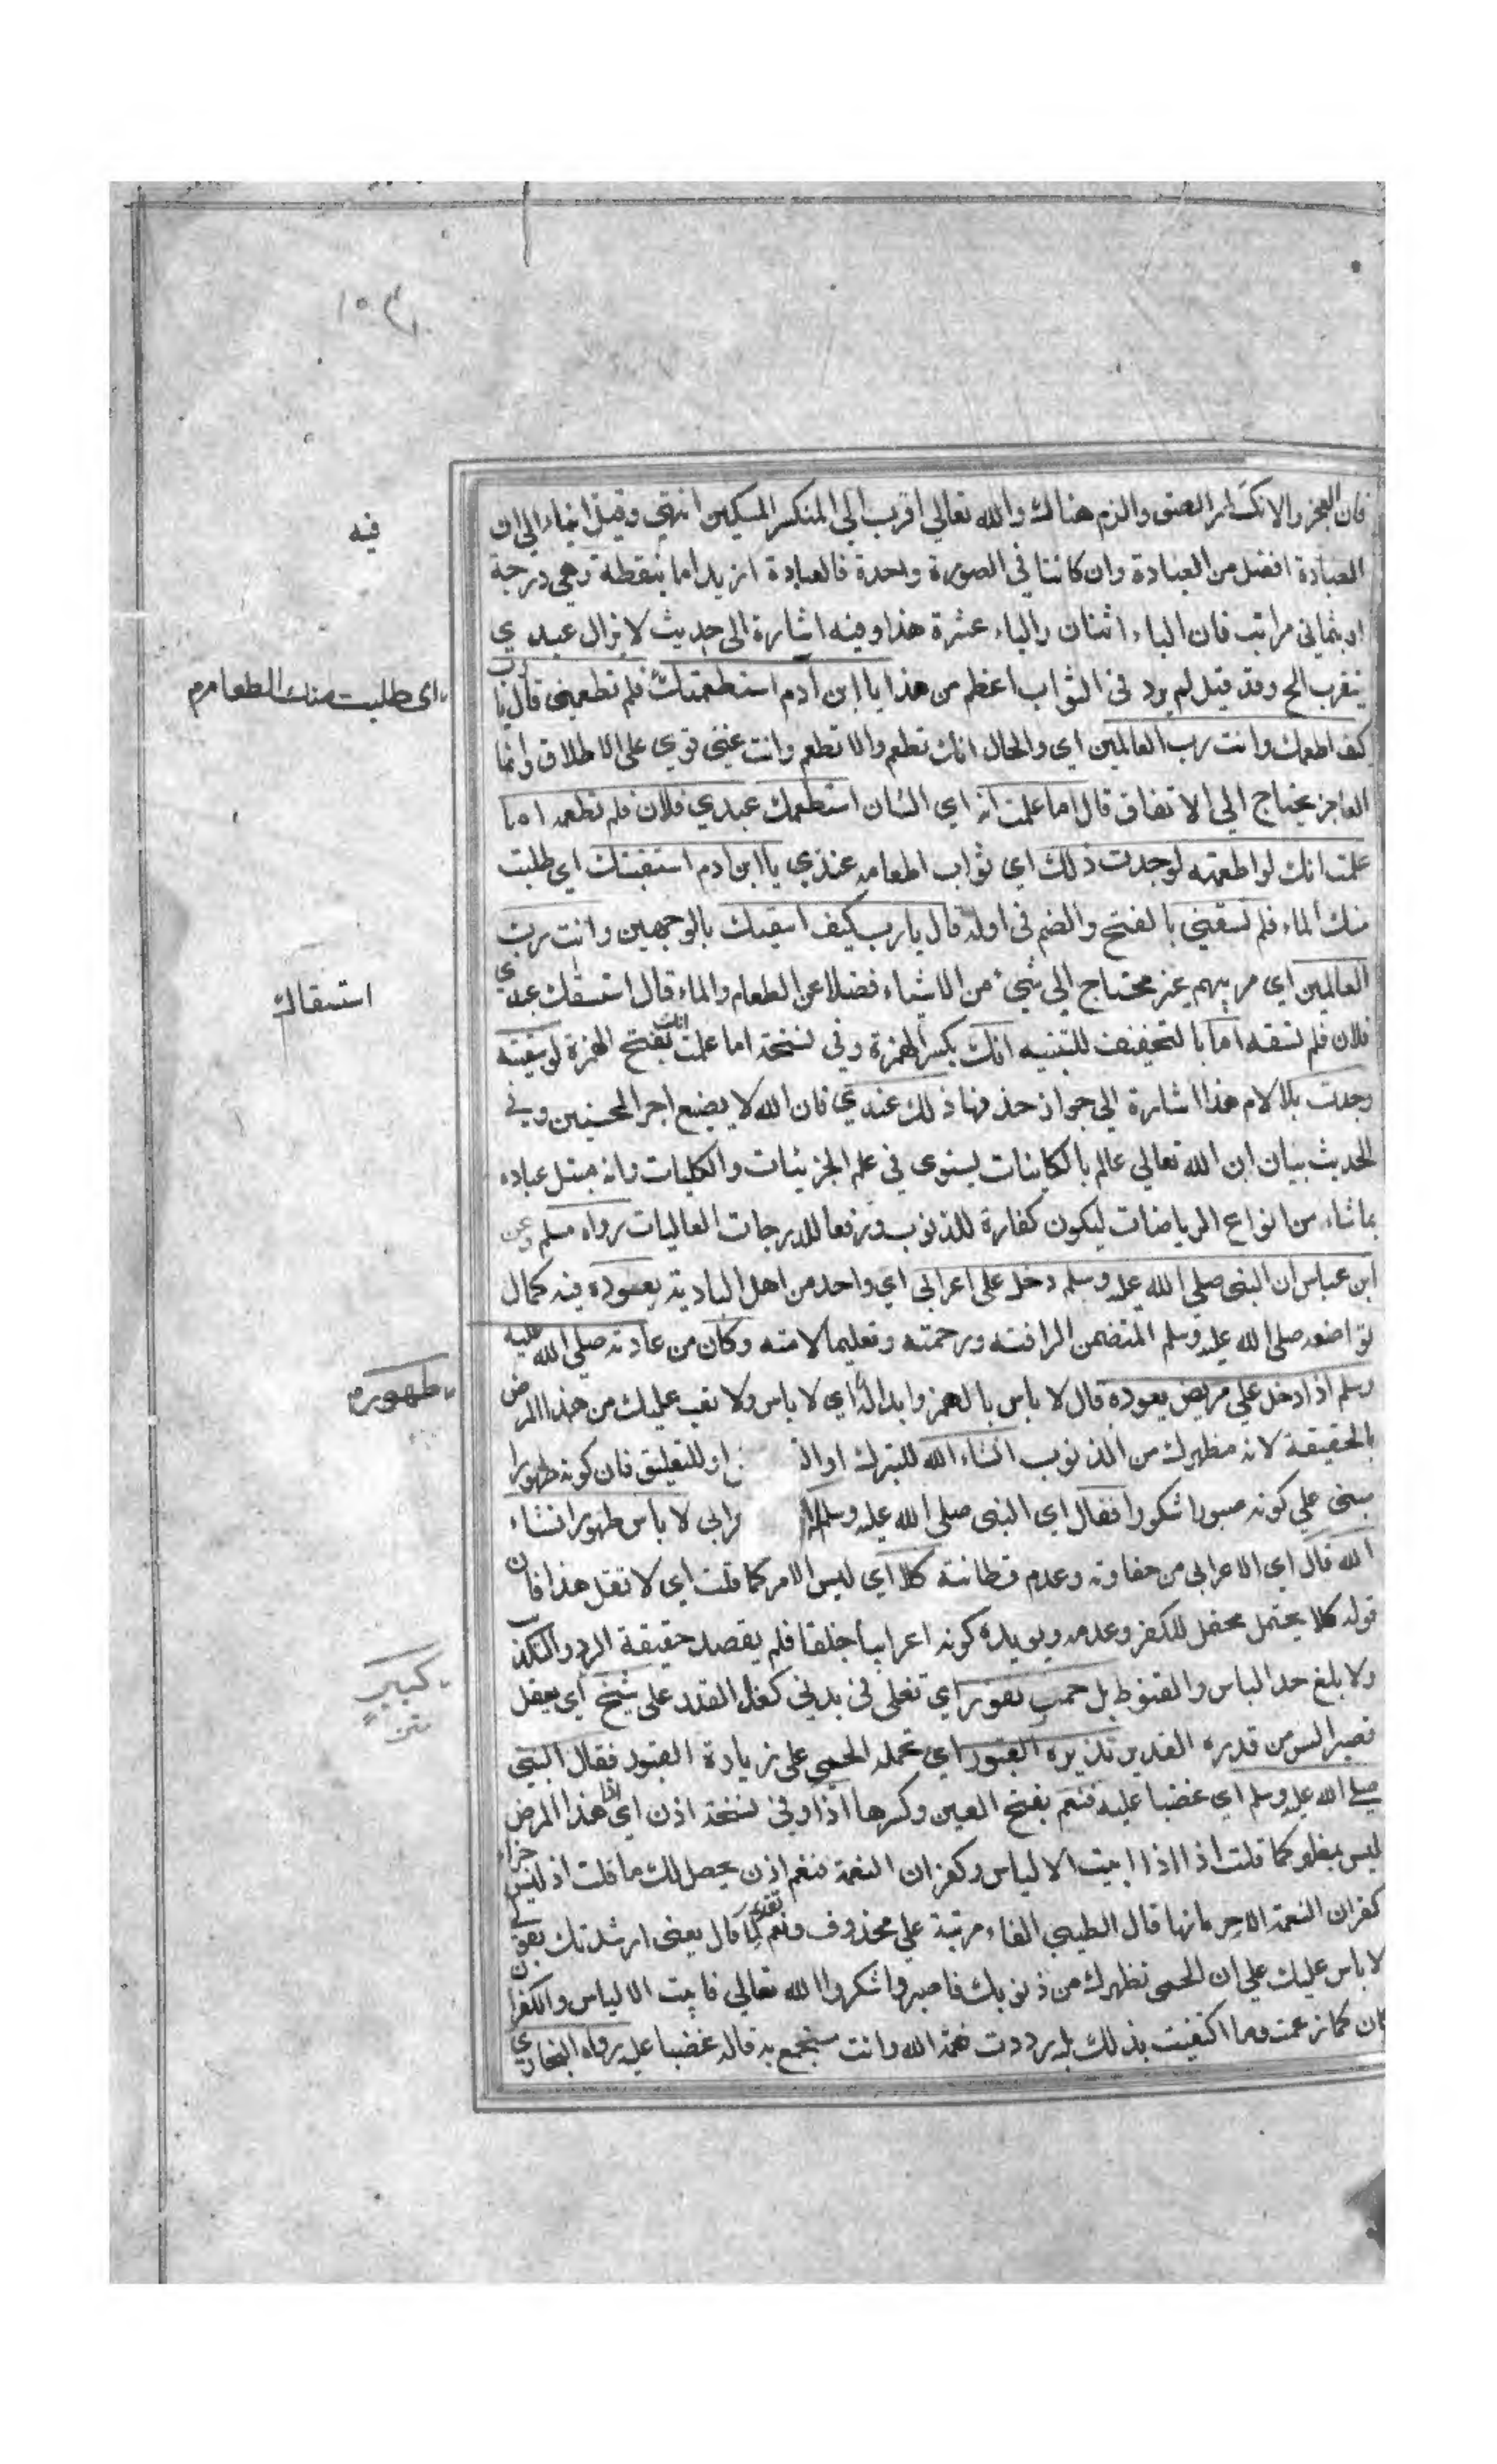 فان العجز والانكسار الصق والزم هناك والله تعالي اقرب الي المنكسر المسكين انتهي وقيل ايماء الي ان
العيادة افضل من العبادة وان كانتا في الصورة واحدة فالعيادة ازيد اما بنقطة وهي درجة
او بثماني مراتب فان الباء اثنان والياء عشرة هذا وفيه اشارة الي حديث لا يزال عبدي
يتقرب الخ وقد قيل لم يرد في الثواب اعظم من هذا يا ابن ادم استطعمتك فلم تطعمني قال يا رب
كيف اطعمك وانت رب العالمين اي والحال انك تطعم ولا تطعم وانت غني قوي علي الاطلاق وانما
العاجز يحتاج الي الانفاق قال اما علمت انه اي الشان استطعمك عبدي فلان فلم تطعمه اما
علمت انك لو اطعمته لوجدت ذلك اي ثواب اطعامه عندي يا ابن ادم استقيتك اي طلبت
منك الماء فلم تسقني بالفتح والضم في اوله قال يا رب كيف اسقيك بالوجهين وانت رب
العالمين اي مربيهم غير محتاج الي شيء من الاشياء فضلا عن الطعام والماء قال استسقك عبدي
فلان فلم تسقه اما بالتخفيف للتنبيه انك بكسر الهمزة وفي نسخة اما علمت انك بفتح الهمزة لو سقيته
وجدت بلا لام هذا اشارة الي جواز حذفها ذلك عندي فان الله لا يضيع اجر المحسنين وفي
الحديث بيان ان الله تعالي عالم بالكاينات يستوي في علم الجزئيات والكليات وانه مبتل عباده
بما شاء من انواع الرياضات ليكون كفارة للذنوب ورفعا للدرجات العاليات رواه مسلم وعن
ابن عباس ان النبي صلي الله عليه وسلم دخل علي اعرابي اي واحد من اهل البادية يعوده فيه كمال
تواضعه صلي الله عليه وسلم المتضمن لرافته ورحمته وتعليما لامته وكان من عادته صلي الله عليه
وسلم اذا دخل علي مريض يعوده قال لا باس بالهمز وابداله اي لا باس ولا تعب عليك من هذا المرض
بالحقيقة لانه مطهرك من الذنوب انشاء الله للتبرك او للتعليق فان كونه طهورا
مبني علي كونه صبورا شكورا فقال اي النبي صلي الله عليه وسلم لا باس طهور انشاء
الله قال اي الاعرابي من جفاوته وعدم فطانته كلا اي ليس الامر كما قلت اي لا تقل هذا فان
قوله كلا يحتمل للكفر وعدمه ويويده كونه اعرابيا جلفا فلم يقصد حقيقة الرد والتكذيب
ولا بلغ حد الياس والقنوط بل حمي تفور اي تغلي في بدني كغلي القدر علي شيخ اي يعقل
تزيره القبور اي تحمله الحمي علي زيارة القبور فقال النبي
صلي الله عليه وسلم اي غضبا عليه فنعم بفتح العين وكسرها اذا وفي نسخة اذن اي اذا هذا المرض
ليس بمطهر كما قلت اذا ابيت الا الياس وكفران النعمة فنعم اذن يحصل لك ما قلت اذ ليس جزاء
كفران النعمة الا حرمانها قال الطيبي الفاء مرتبة علي محذوف ونعم تقرير لما قال يعني ارشدتك بقولي
لا باس عليك علي ان الحمي تطهرك من ذنوبك فاصبر واشكر الله تعالي فابيت الا الياس والكفران
فكان كما زعمت وما اكتفيت بذلك بل رددت نعمة الله وانت قاله غضبا عليه رواه البخاري
فيه
اي طلبت منك الطعام م
استسقاك
طهور م
كبير